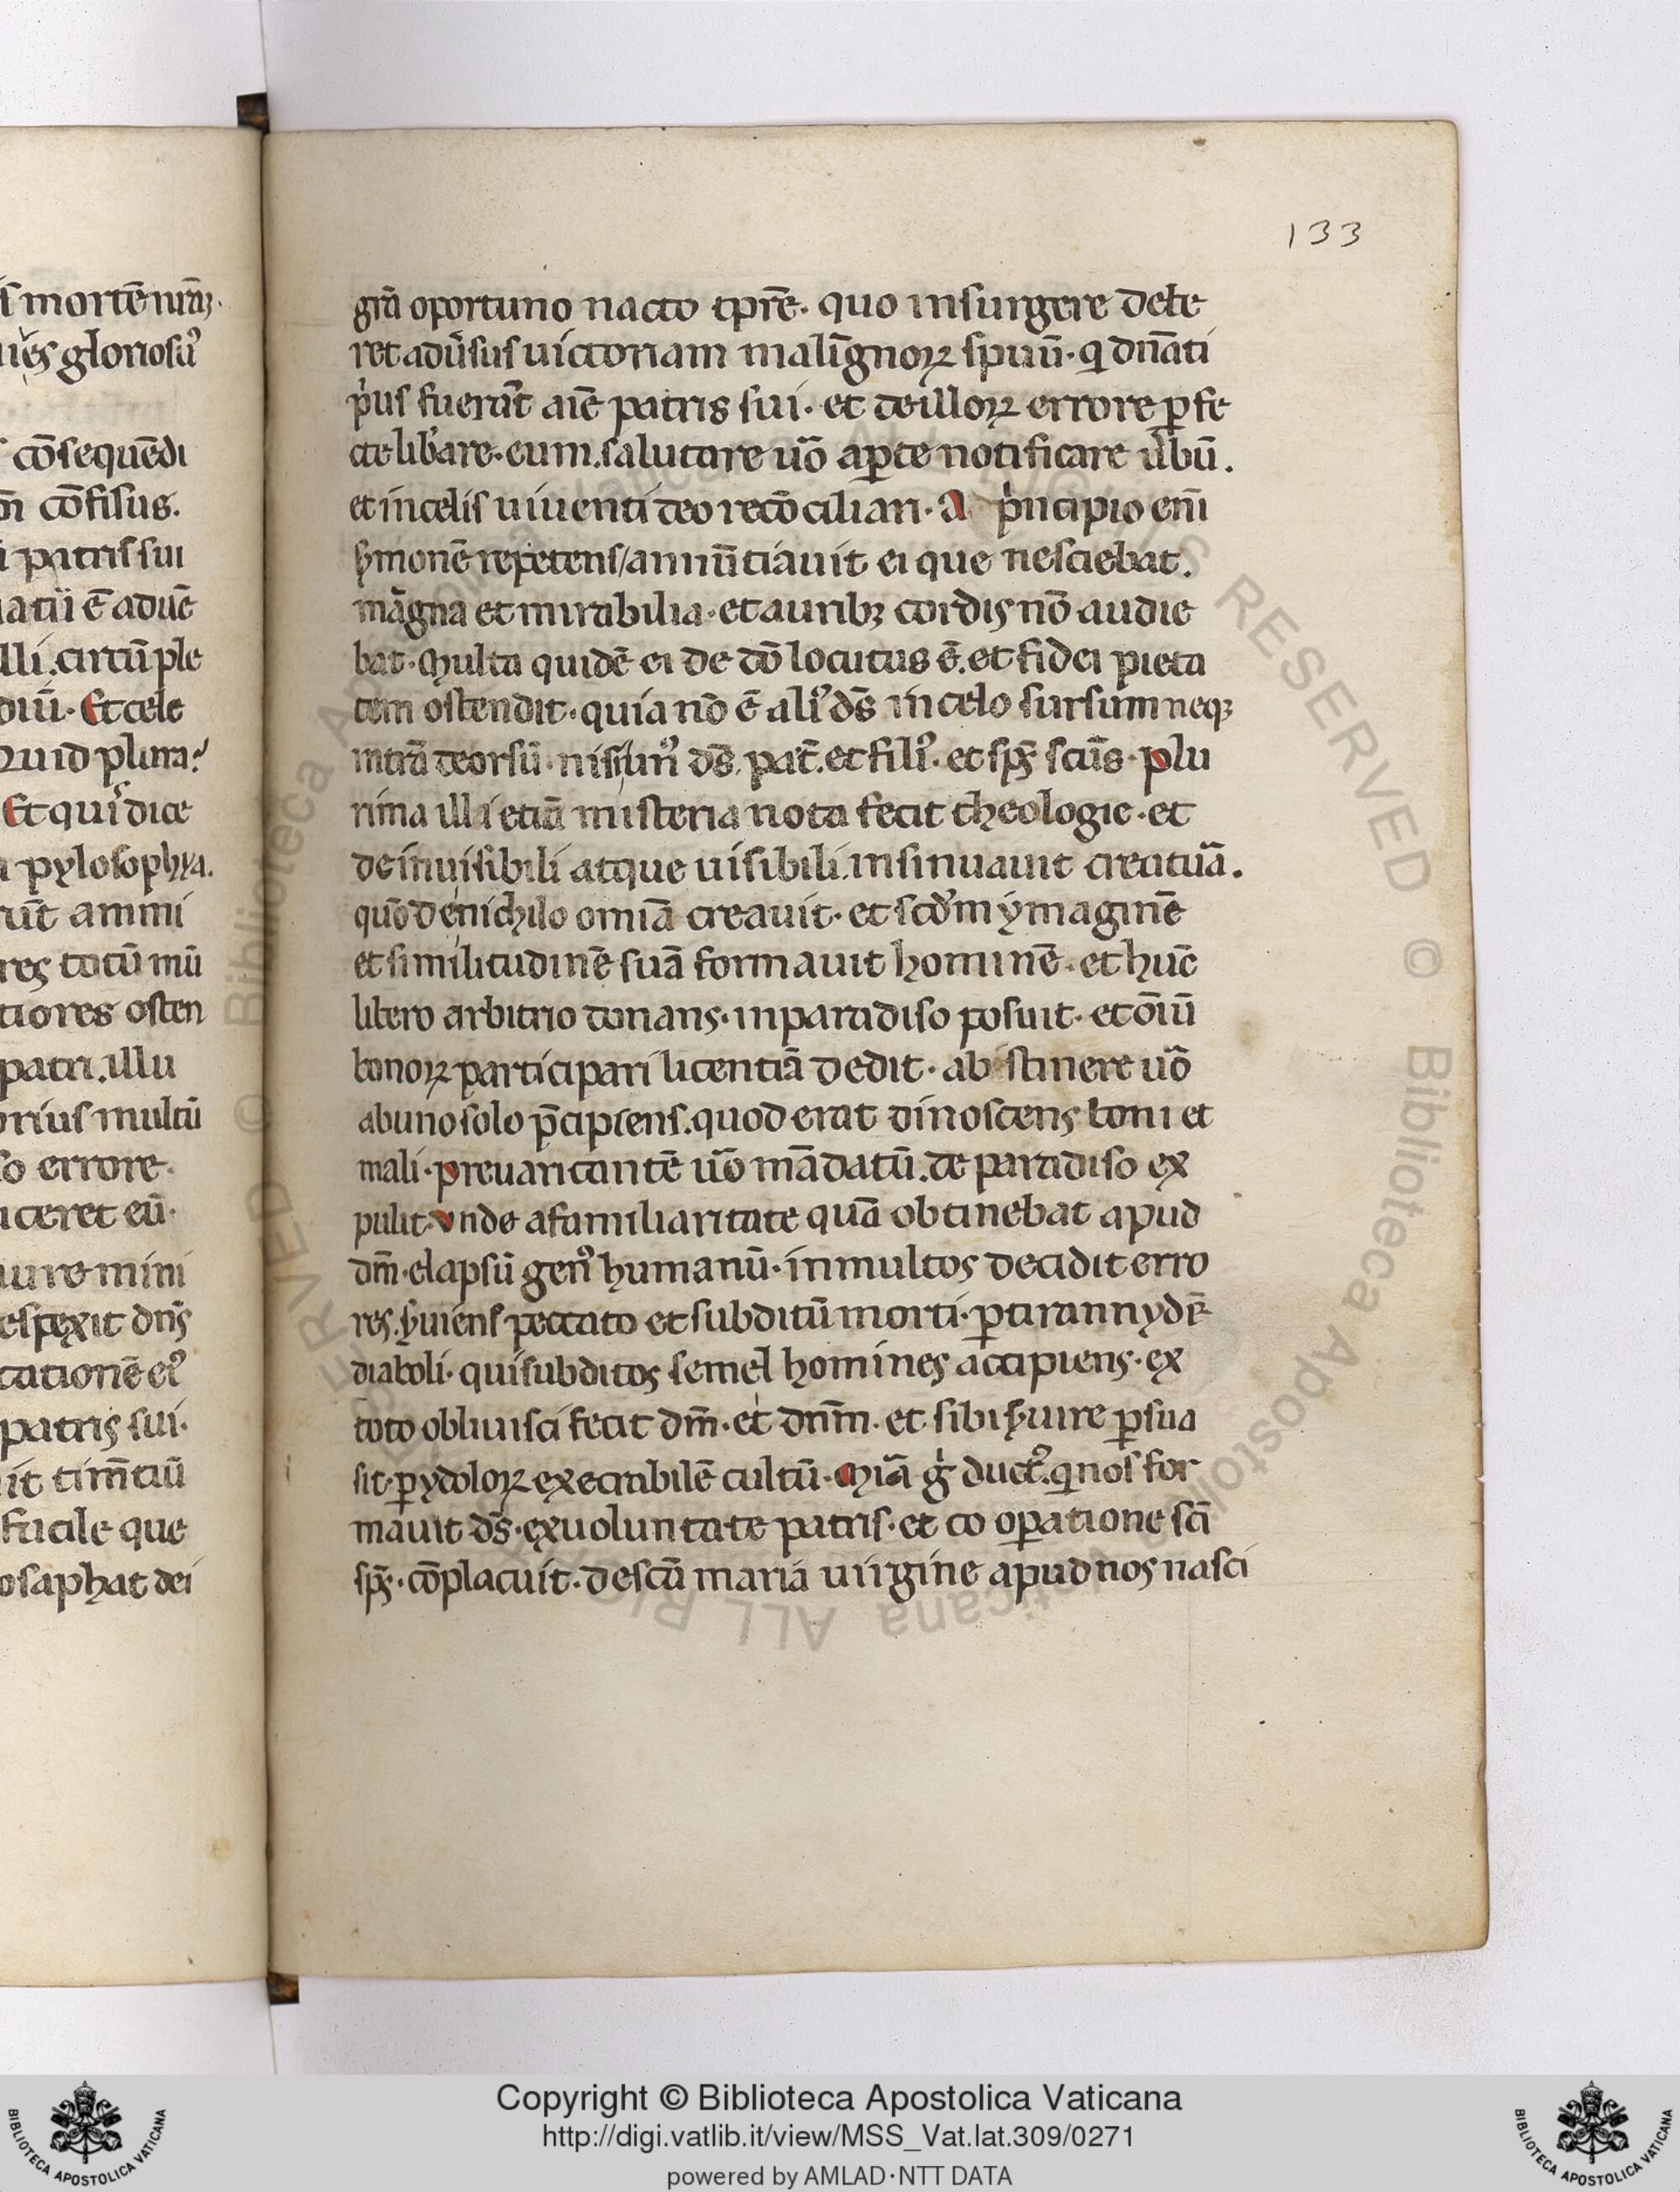 133
ſ mortē nr̄āꝫ.
gr̄a oportuno nacto tp̄re. quo inſurgere debe
ret aduͥſuſ uictoriam malignoꝝ ſpuū. q̇ dn̄ati
p̍us fuerūt aīe patris ſui. et de illoꝝ errore ꝑfe
cte lib̍are. eum. ſalutare uō aꝑte notificare u̍bū.
et in celiſ uiuenti deo recōciliari. A p̍ncipio eni
ẏmonē repetenſ/annūtiauit ei que neſciebat.
māgna et mirabilia. et auribꝫ cordis nō audie
bat. Multa quidē ei de dō locutus ē. et fidei pieta
tem oſtendit. quia nō ē aliꝰ ds̄ in celo ſurſum neqꝫ
in tr̄a deorſū. niſi unꝰ ds̄. pat̄. et filiꝰ. et ſp̄s ſcūs. plu
rima illi etiā miſteria nota fecit theologie. et
de inuiſibili atque uiſibili. inſinuauit creatuā.
quō de nichilo omīa creauit. et ſcd̄m ymaginē
et ſimilitudinē ſuā formauit hominē. et hūc
libero arbitrio donans. in paradiſo poſuit. et oīū
bonoꝝ participari licentiā dedit. ab ſtinere uō
ab uno ſolo p̄cipienſ. quod erat dinoſcens boni et
mali. preuaricantē uō mādatū. de paradiſo ex
pulit. vnde a familiaritate quā obtinebat apud
dm̄. elapſū genꝰ humanū. in multos decidit erro
res. ẜuienſ peccato et ſubditū morti. ꝑ tirannydē
diaboli. qui ſubditos ſemel homines accipiens. ex
toto obliuiſci fecit dm̄. et dn̄m. et ſibi ẜuire ꝑſua
ſit. ꝑ ydoloꝝ execrabilē cultū. Mīā g̍ ductꝰ. q̇ noſ for
mauit ds̄. ex uoluntate patriſ. et co oꝑatione ſcī
ſp̄s. cōplacuit. de ſcā maria uirgine apud nos naſci
ues glorioſuꝰ
cōſequēdi
cōfiſus.
patriſ ſui
ē aduē
lli. circūple
diū. Et cele
quid plura?
Et qui dice
pyloſophya.
rūt ammi
res totū mū
tiores oſten
patri. illu
oriuſ multū
ſo errore.
ceret eū.
mini
eſpexit dn̄s
tationē eiꝰ
patris ſui.
it
facile que
oſaphat dei
Copyright © Biblioteca Apostolica Vaticana
http://digi.vatlib.it/view/MSS_Vat.lat.309/0271
powered by AMLAD·NTT DATA
BIBLIOTECA APOSTOLICA VATICANA
BIBLIOTECA APOSTOLICA VATICANA